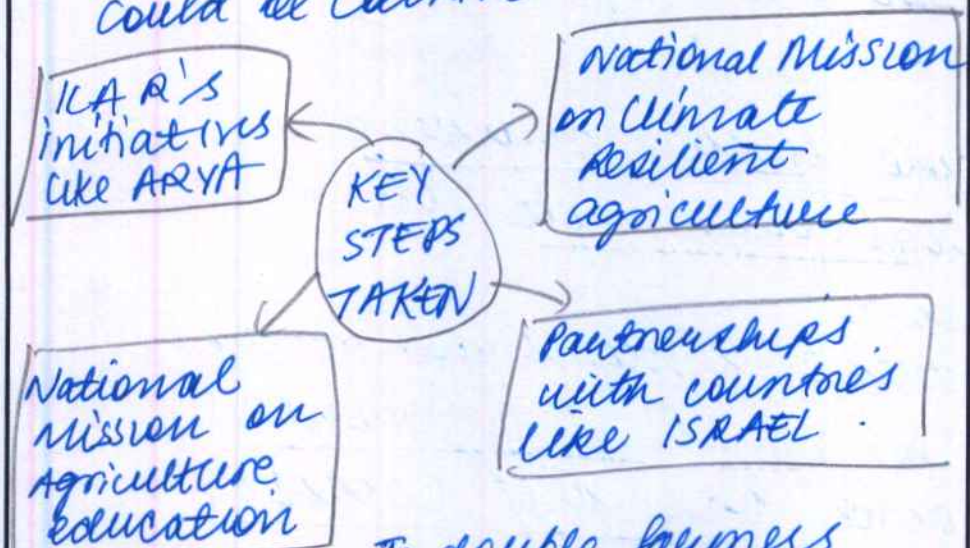 could be
ICAR's
initiatives
like ARYA
National Mission
on Climate
Resilient
agriculture
KEY
STEPS
TAKEN
National
Mission on
Agriculture
education
Partnerships
with countries
like ISRAEL.
To double farmers